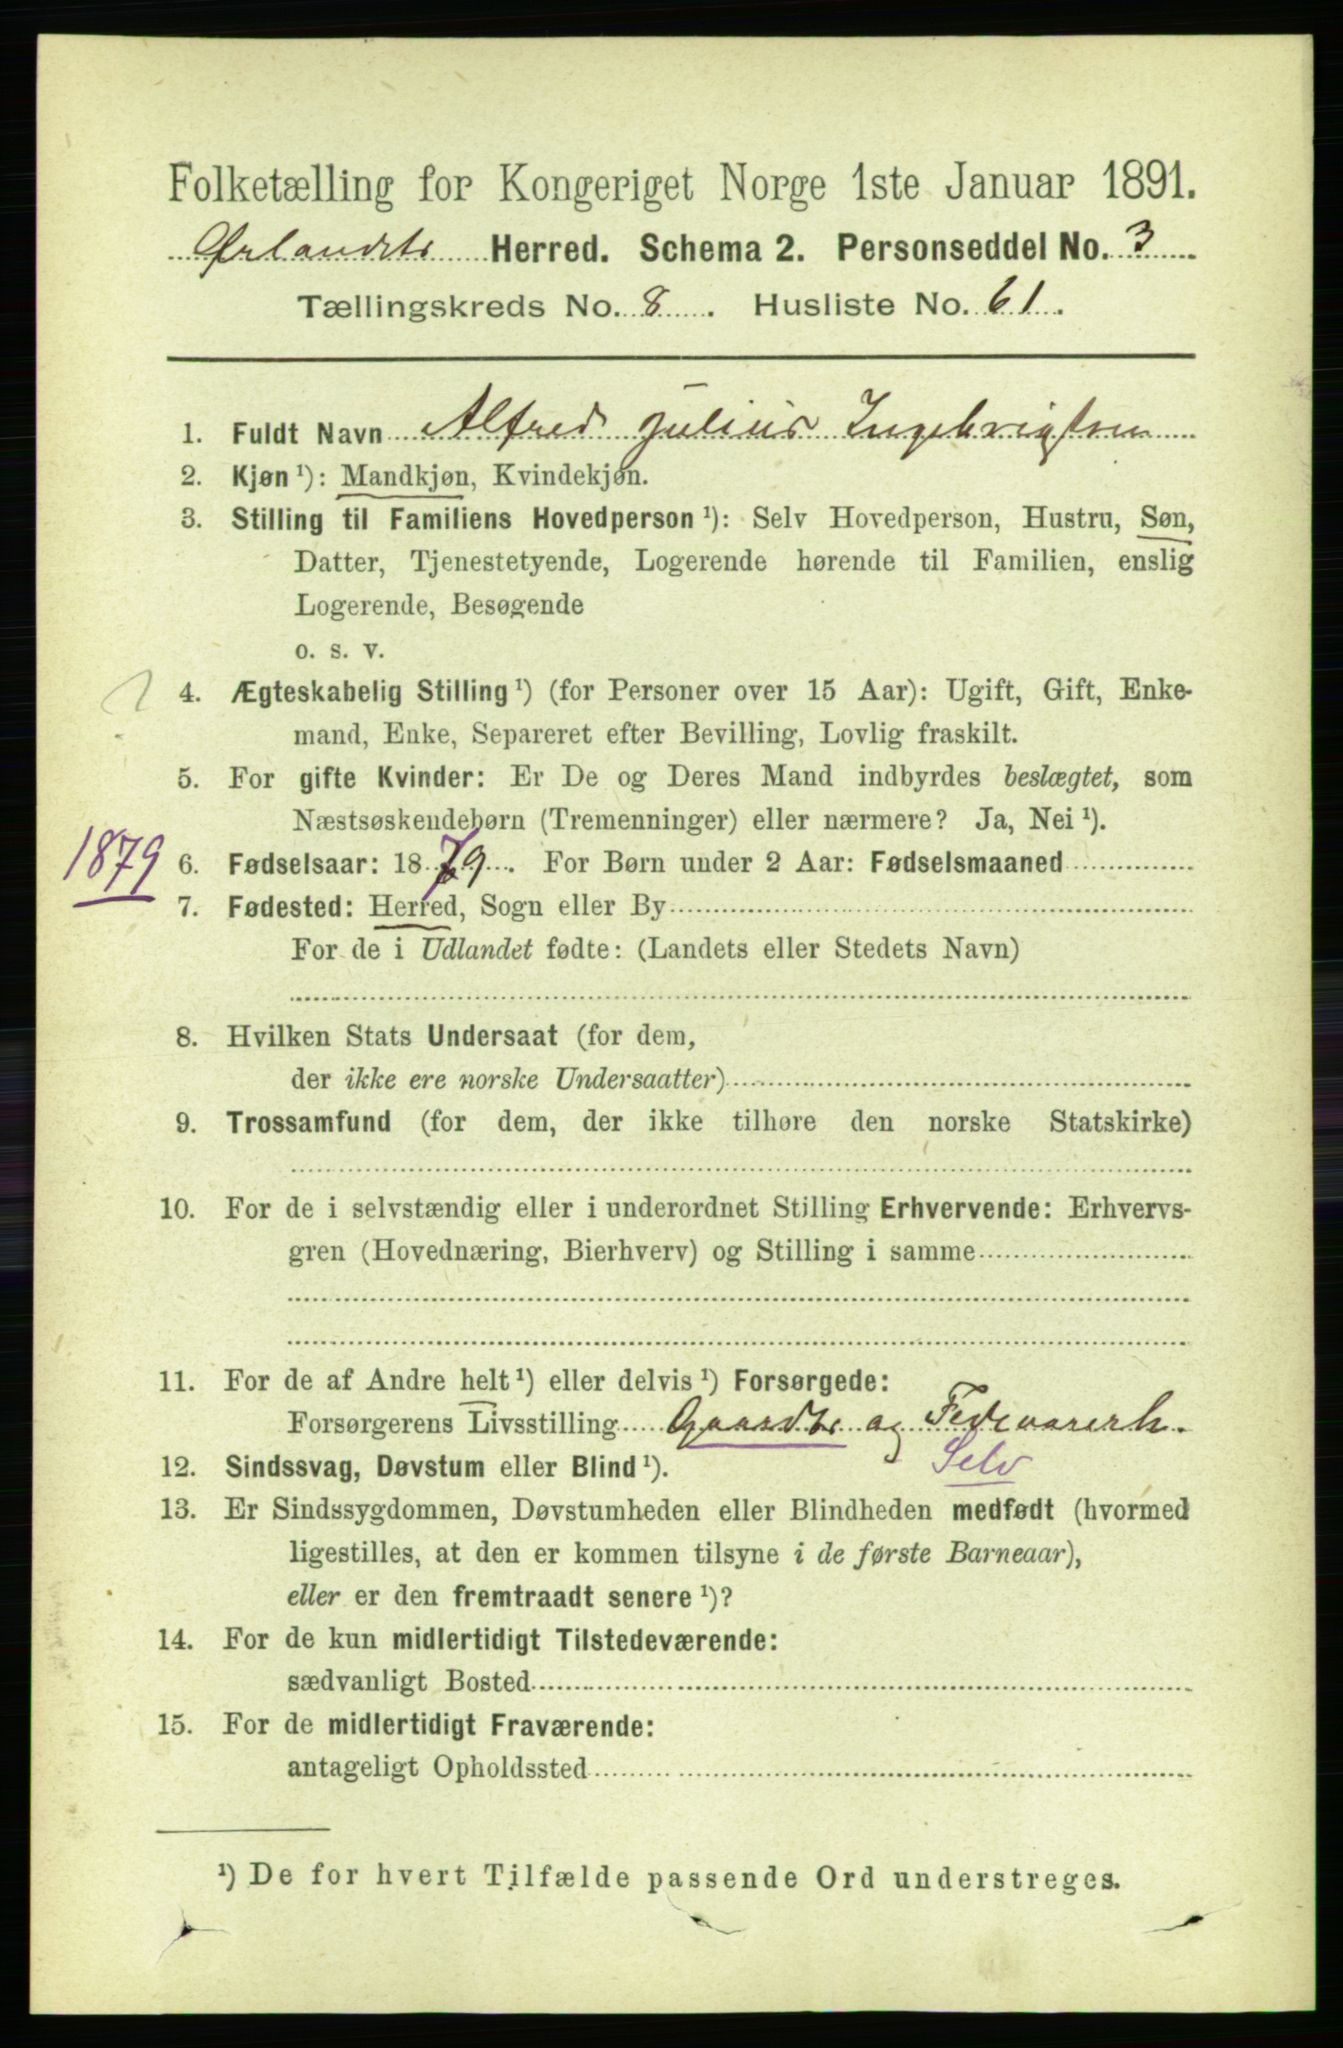 Folketælling for Kongeriget Norge 1ste Januar 1891.
Ørlandets Herred. Schema 2. Personseddel No. 3
Tællingskreds No. 8. Husliste No. 61.
1. Fuldt Navn Alfred Julius Ingebrigtsen
2. Kjøn ¹): Mandkjøn, Kvindekjøn.
3. Stilling til Familiens Hovedperson ¹): Selv Hovedperson, Hustru, Søn,
Datter, Tjenestetyende, Logerende hørende til Familien, enslig
Logerende, Besøgende
o. s. v.
4. Ægteskabelig Stilling ¹) (for Personer over 15 Aar): Ugift, Gift, Enke-
mand, Enke, Separeret efter Bevilling, Lovlig fraskilt.
5. For gifte Kvinder: Er De og Deres Mand indbyrdes beslægtet, som
Næstsøskendebørn (Tremenninger) eller nærmere? Ja, Nei ¹).
1879 6. Fødselsaar: 1879. For Børn under 2 Aar: Fødselsmaaned
7. Fødested: Herred, Sogn eller By
For de i Udlandet fødte: (Landets eller Stedets Navn)
8. Hvilken Stats Undersaat (for dem,
der ikke ere norske Undersaatter)
9. Trossamfund (for dem, der ikke tilhøre den norske Statskirke)
10. For de i selvstændig eller i underordnet Stilling Erhvervende: Erhvervs-
gren (Hovednæring, Bierhverv) og Stilling i samme
11. For de af Andre helt ¹) eller delvis ¹) Forsørgede:
Forsørgerens Livsstilling Gaardbr og Fedevarerh.
12. Sindssvag, Døvstum eller Blind ¹). Selv
13. Er Sindssygdommen, Døvstumheden eller Blindheden medfødt (hvormed
ligestilles, at den er kommen tilsyne i de første Barneaar),
eller er den fremtraadt senere ¹)?
14. For de kun midlertidigt Tilstedeværende:
sædvanligt Bosted
15. For de midlertidigt Fraværende:
antageligt Opholdssted
¹) De for hvert Tilfælde passende Ord understreges.